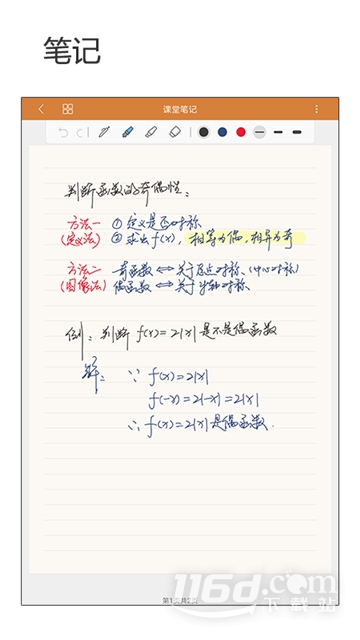 笔记
课堂笔记
判断函数的奇偶性:
方法一 ① 定义是否对称
(定义法) ② 求出 f(x), 相等为偶, 相异为奇
方法二 奇函数 ⇔ 关于原点对称 (中心对称)
(图像法) 偶函数 ⇔ 关于y轴对称
例: 判断 f(x)=2|x| 是不是偶函数
解: ∵ f(x)=2|x|
f(-x)=2|-x|=2|x|
∴ f(x)=2|x| 是偶函数.
第1页共2页
116d.com
下载站